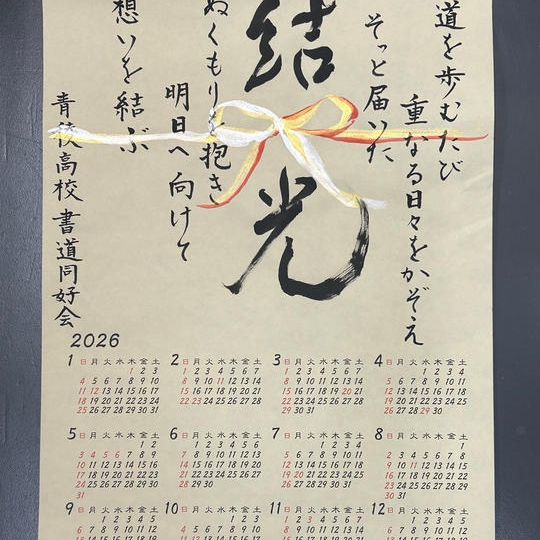 道を歩むたび
重なる日々をかぞえ
そっと届いた
結光
ぬくもりを抱き
明日へ向けて
想いを結ぶ
青稜高校書道同好会
2026
1 日月火水木金土
1 2 3
4 5 6 7 8 9 10
11 12 13 14 15 16 17
18 19 20 21 22 23 24
25 26 27 28 29 30 31
2 日月火水木金土
1 2 3 4 5 6 7
8 9 10 11 12 13 14
15 16 17 18 19 20 21
22 23 24 25 26 27 28
3 日月火水木金土
1 2 3 4 5 6 7
8 9 10 11 12 13 14
15 16 17 18 19 20 21
22 23 24 25 26 27 28
29 30 31
4 日月火水木金土
1 2 3 4
5 6 7 8 9 10 11
12 13 14 15 16 17 18
19 20 21 22 23 24 25
26 27 28 29 30
5 日月火水木金土
1 2
3 4 5 6 7 8 9
10 11 12 13 14 15 16
17 18 19 20 21 22 23
24 25 26 27 28 29 30
31
6 日月火水木金土
1 2 3 4 5 6
7 8 9 10 11 12 13
14 15 16 17 18 19 20
21 22 23 24 25 26 27
28 29 30
7 日月火水木金土
1 2 3 4
5 6 7 8 9 10 11
12 13 14 15 16 17 18
19 20 21 22 23 24 25
26 27 28 29 30 31
8 日月火水木金土
1
2 3 4 5 6 7 8
9 10 11 12 13 14 15
16 17 18 19 20 21 22
23 24 25 26 27 28 29
30 31
9 日月火水木金土
1 2 3 4 5
6 7 8 9 10 11 12
10 日月火水木金土
1 2 3
4 5 6 7 8 9 10
11 日月火水木金土
1 2 3 4 5 6 7
8 9 10 11 12 13 14
12 日月火水木金土
1 2 3 4 5
6 7 8 9 10 11 12